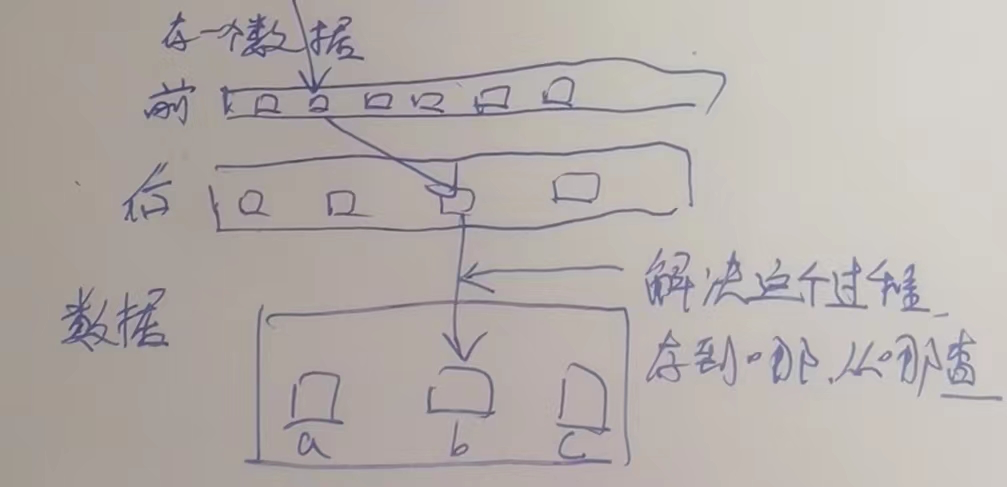 存一个数据
前
后
数据
解决这个过程
存到哪,从哪查
a
b
c